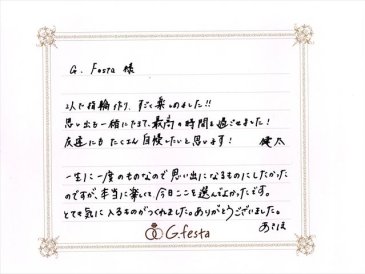 G. Festa 様
2人で指輪作り、すごく楽しめました!!
思い出も一緒にできて、最高の時間を過ごせました!
友達にも たくさん自慢したいと思います! 健太
一生に一度のものなので思い出になるものにしたかった
のですが、本当に楽しくて今日ここを選んでよかったです。
とても気に入るものがつくれました。ありがとうございました。
あさほ
G.festa